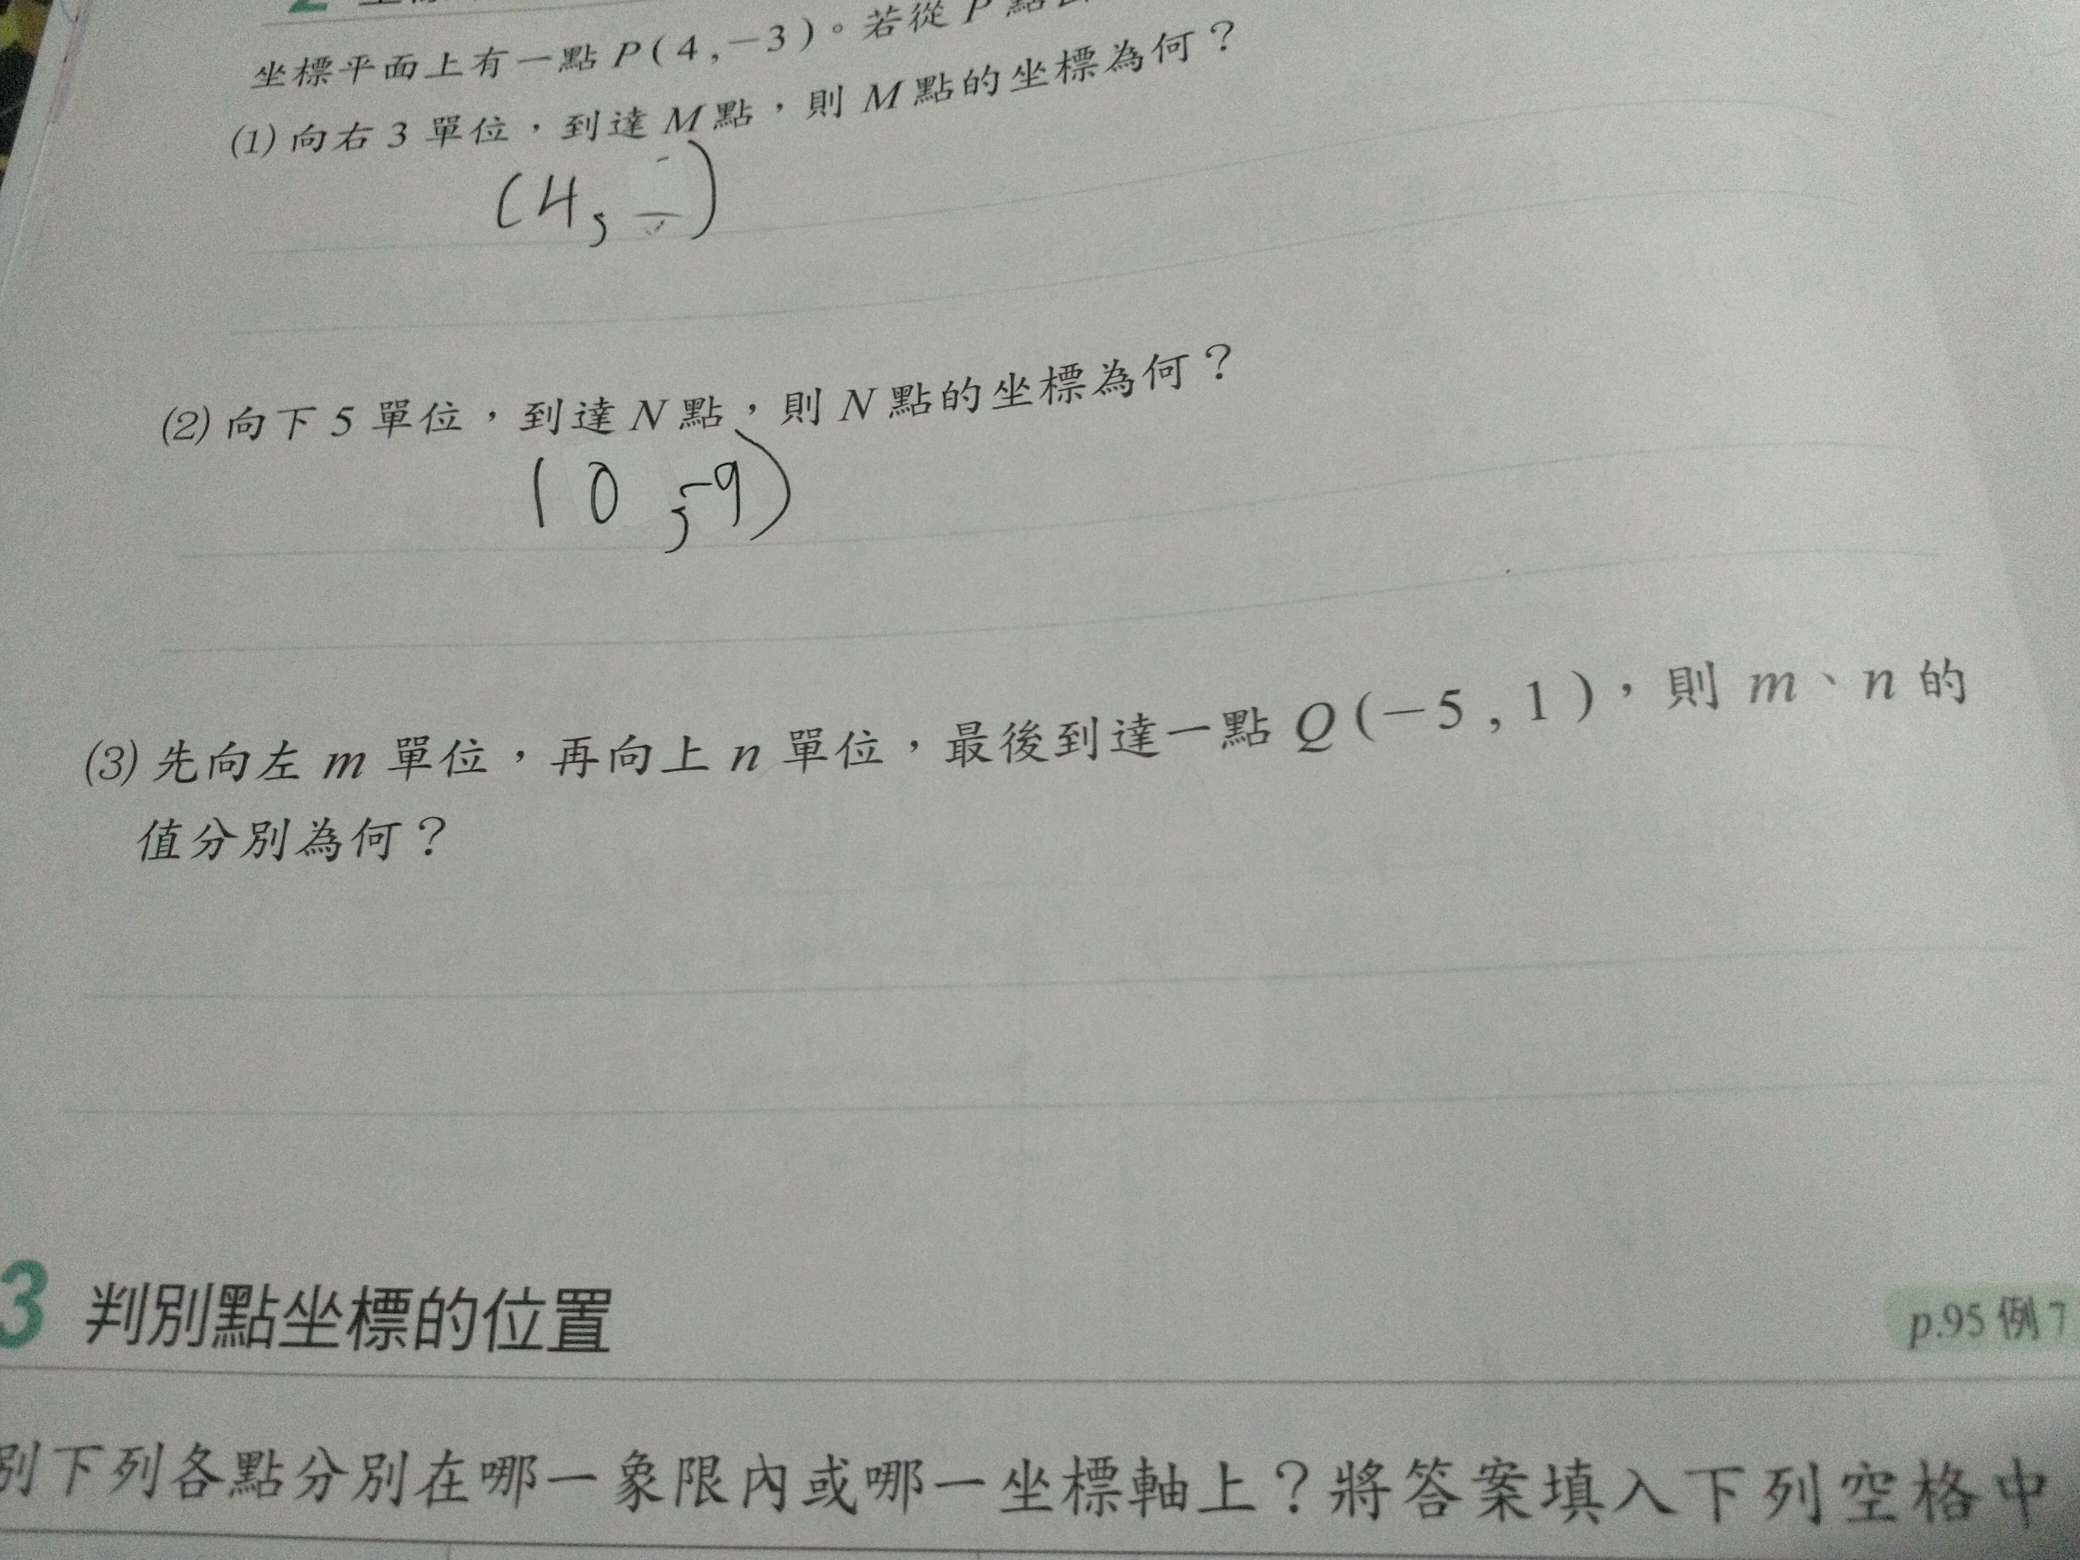 2
坐標平面上有一點 P ( 4 , －3 )。若從 P 點
(1) 向右 3 單位，到達 M 點，則 M 點的坐標為何？
(4,
(2) 向下 5 單位，到達 N 點，則 N 點的坐標為何？
( 0 , -9)
(3) 先向左 m 單位，再向上 n 單位，最後到達一點 Q (－5 , 1 )，則 m、n 的
值分別為何？
3 判別點坐標的位置
p.95 例 7
別下列各點分別在哪一象限內或哪一坐標軸上？將答案填入下列空格中